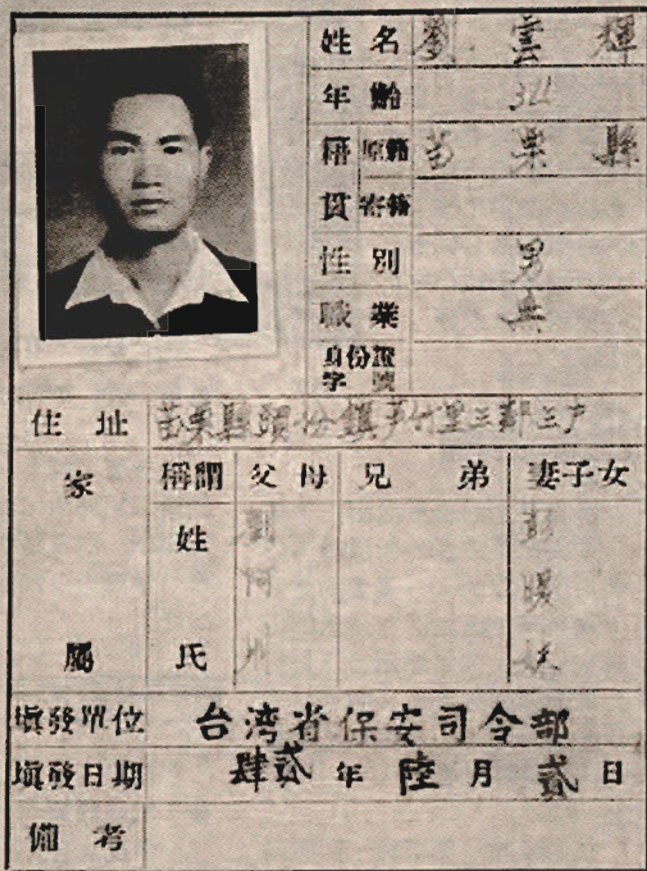 姓名 劉雲輝
年齡 34
籍貫 原籍 苗栗縣
寄籍
性別 男
職業 無
身份證字號
住址 苗栗縣頭份鎮芦竹里三鄰三户
家屬 稱謂 父母 兄弟 妻子女
姓氏 劉阿 彭暖妹
填發單位 台湾省保安司令部
填發日期 肆贰年陸月贰日
備考